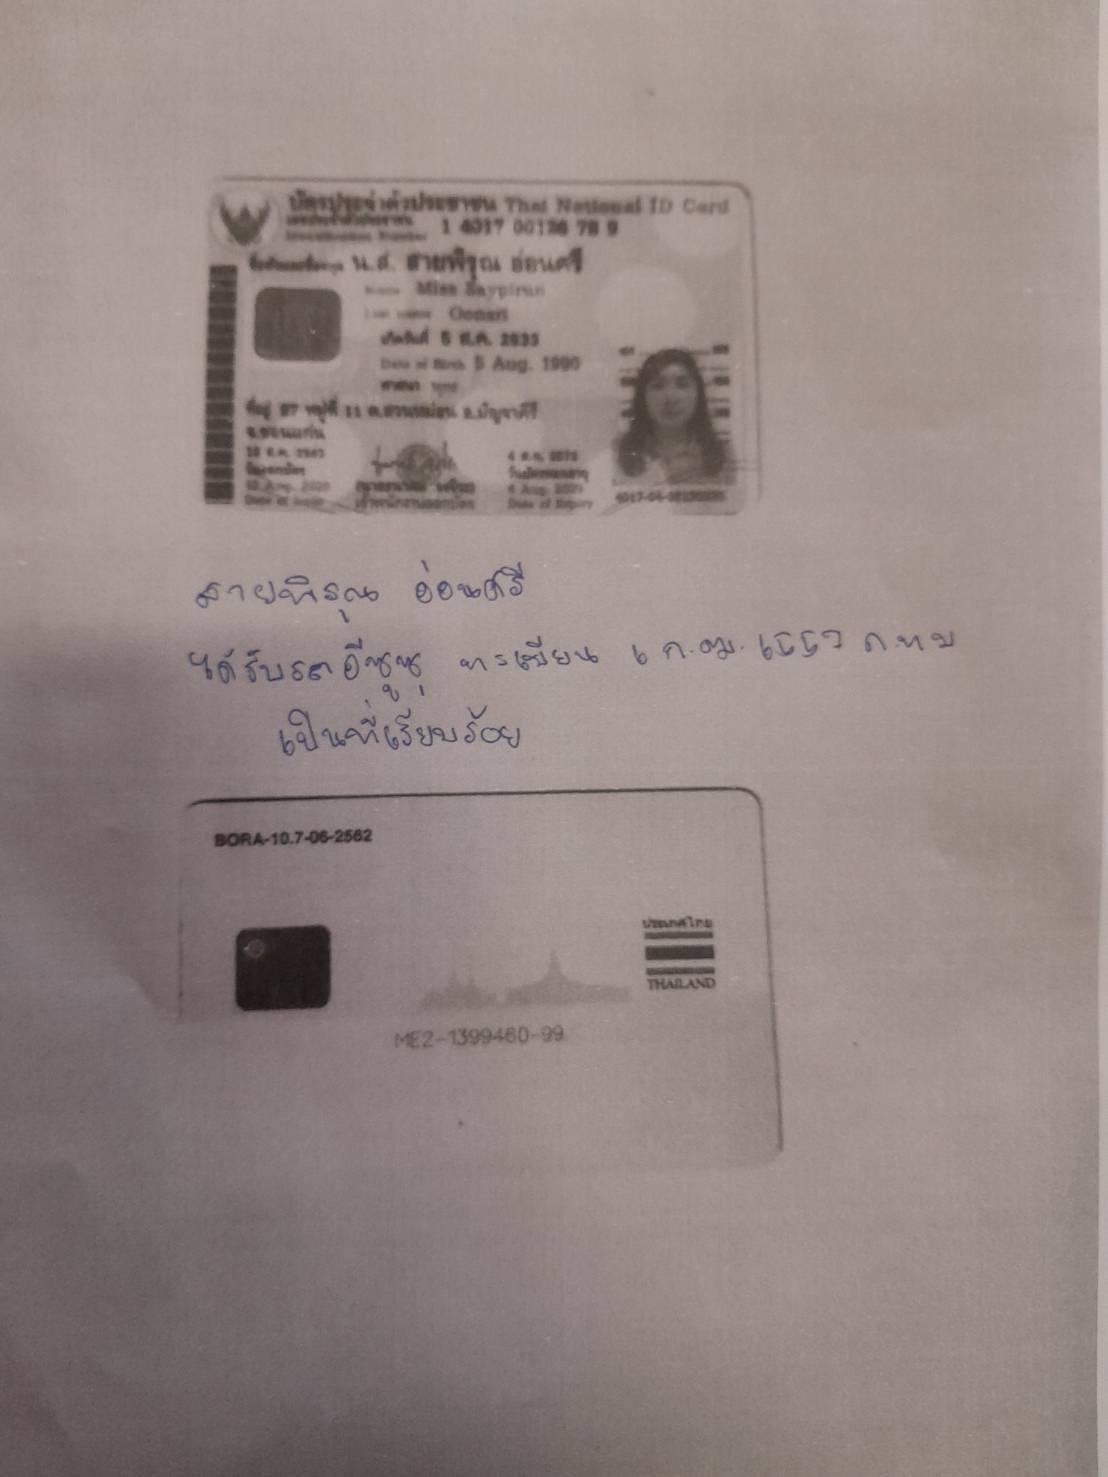 บัตรประจำตัวประชาชน Thai National ID Card
เลขประจำตัวประชาชน 1 4017 00136 78 9
Identification Number
ชื่อตัวและชื่อสกุล น.ส. สายพิรุณ อ่อนศรี
Name Miss Saypirun
Last name Oonsri
เกิดวันที่ 5 ส.ค. 2533
Date of Birth 5 Aug. 1990
ศาสนา พุทธ
ที่อยู่ 87 หมู่ที่ 11 ต.สวนหม่อน อ.มัญจาคีรี
จ.ขอนแก่น
วันออกบัตร
เจ้าพนักงานออกบัตร
วันบัตรหมดอายุ
Date of Issue
Date of Expiry
สายพิรุณ อ่อนศรี
ได้รับรถอีซูซุ ทะเบียน
เป็นที่เรียบร้อย
BORA-10.7-06-2562
ประเทศไทย
THAILAND
ME2-1399460-99